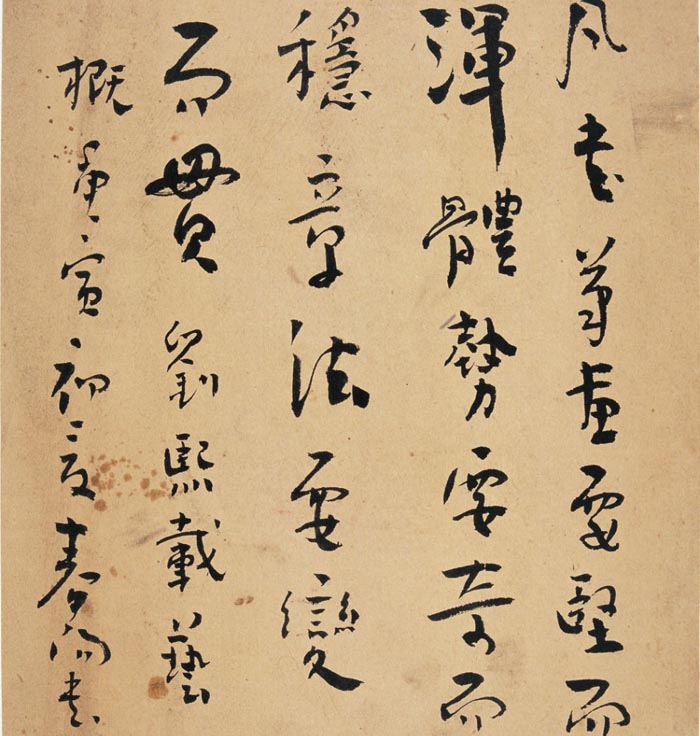 凡書筆畫要堅而
渾體勢要奇而
穩章法要變
而貫劉熙載藝
概庚寅初夏春澍書